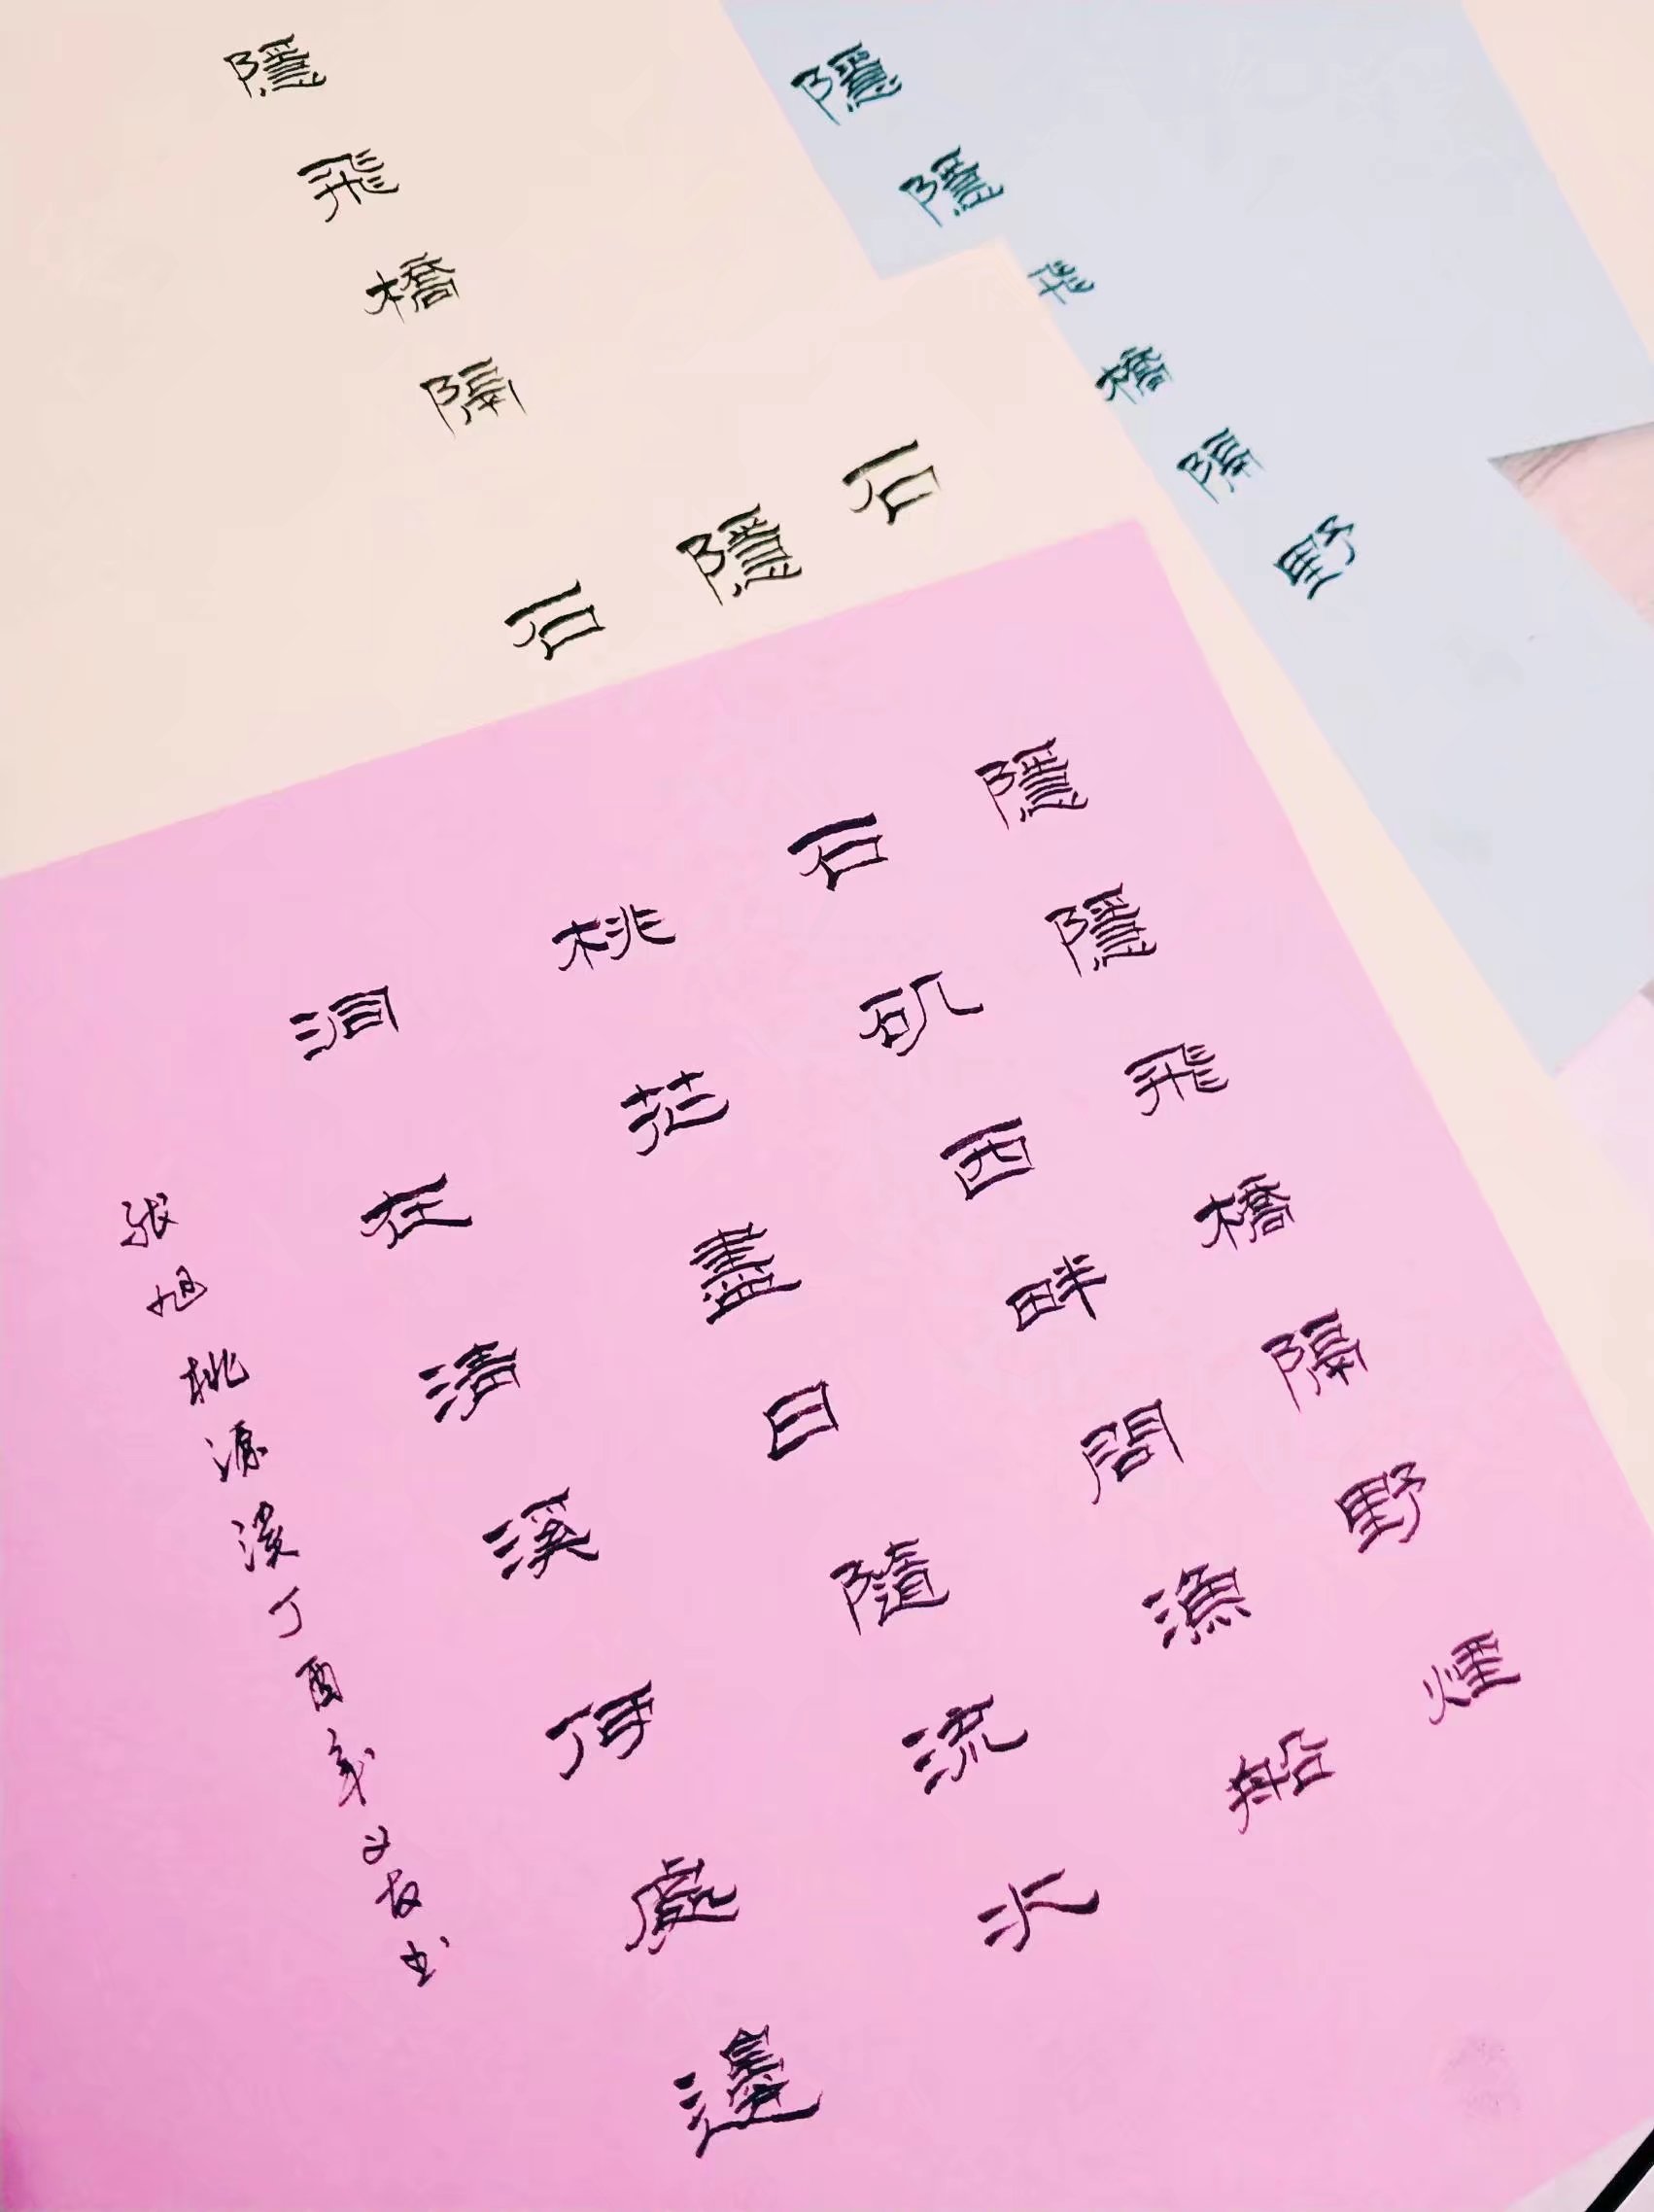 隱隱飛橋隔野
隱飛橋隔
石
隱
石
隱隱飛橋隔野煙
石矶西畔問漁船
桃花盡日隨流水
洞在清溪何處邊
张旭桃源溪丁酉书